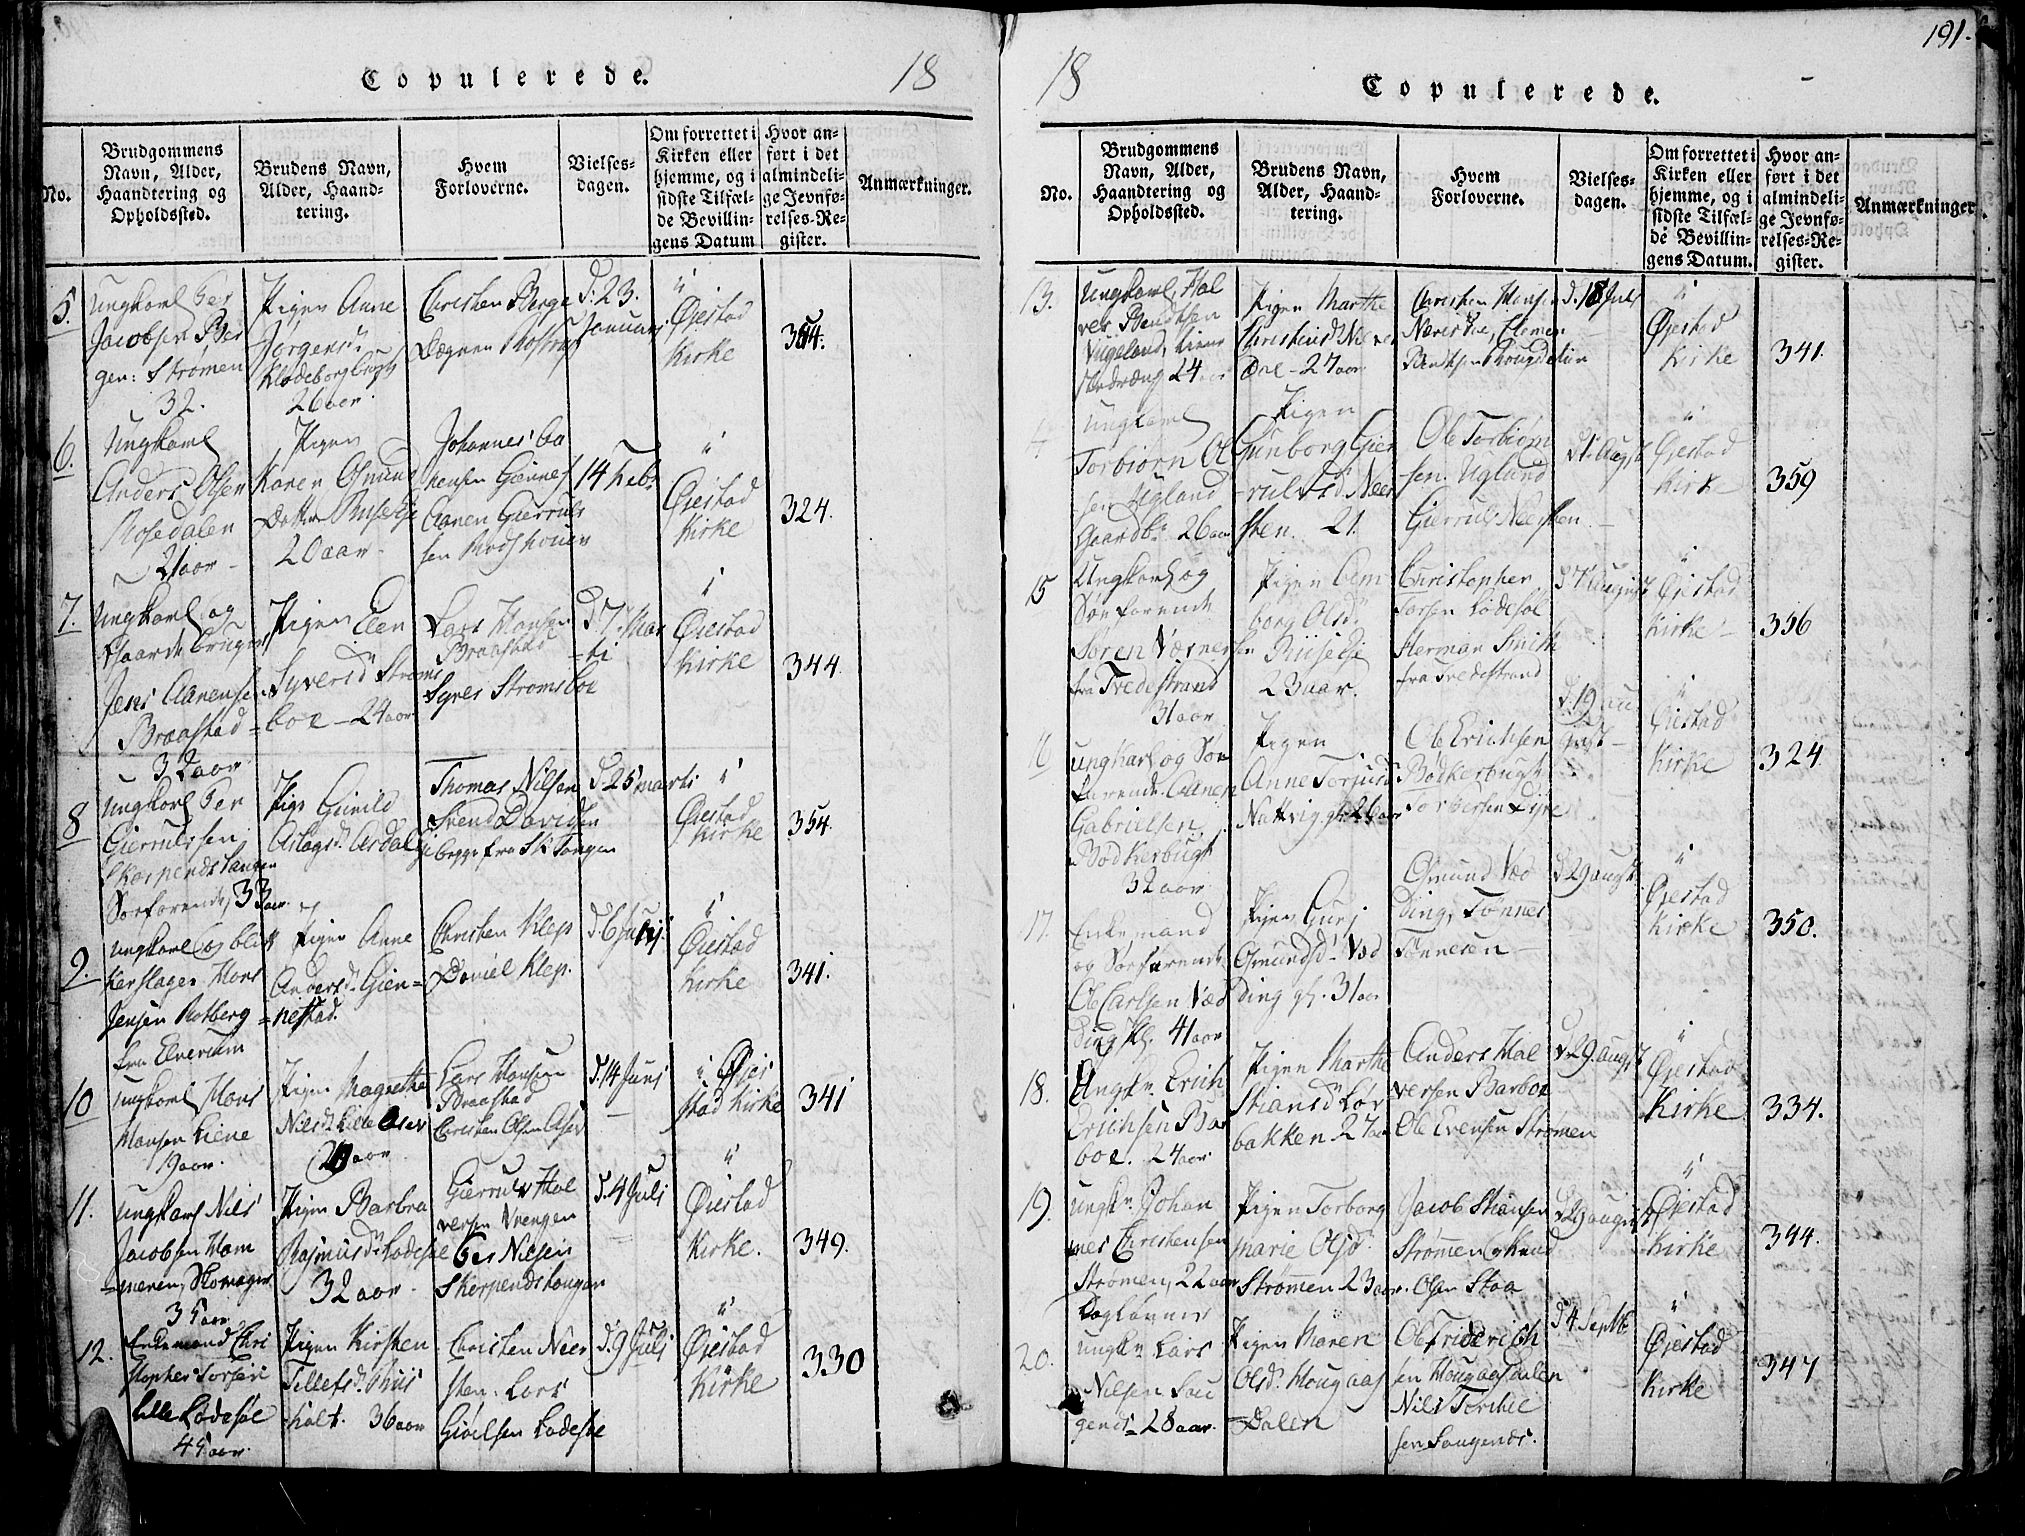 Copulerede.
18
No.
Brudgommens
Navn, Alder,
Haandtering og
Opholdssted.
Brudens Navn,
Alder, Haand-
tering.
Hvem
Forloverne.
Vielses-
dagen.
Om forrettet i
Kirken eller
hjemme, og i
sidste Tilfæl-
de Bevillin-
gens Datum
Hvor an-
ført i det
almindeli-
ge Jevnfø-
relses-Re-
gister.
Anmærkninger.
5.
Ungkarl Per
Jacobsen Ber
gen: Strømen
32.
Pigen Anne
Jørgensd.
Klodeborgbrugh
26 aar
Christen Berge
Dægnen Rostrup
d. 23.
Januari
"
Øiestad
Kirke
6.
Ungkarl
Anders Olsen
Rosedalen
21 aar
Pigen
Karen Osmunds
Datter
20 aar
Johannes
Aanen Gierruls
sen
14 Feb.
"
Øiestad
Kirke
324.
7.
Ungkarl og
Gaardbruger
Jens Aanensen
Braastad
32 aar
Pigen Elen
Syversd. Stroms
boe - 24 aar
Lars Hansen
Braastad
Syver Stromsboe
d. 7. Mar
=ti
"
Øiestad
Kirke
344.
8
Ungkarl Per
Gierrulssen
Skarpends tangen
Sørfarende, 33 aar
Pige Gunild
Aslagsd. Asdal
Thomas Nilsen
Svend Davidsen
begge fra Sk Tangen
d. 25 marti
"
Øiestad
Kirke
354.
9.
Ungkarl og blik
kenslager Hans
Jensen Rotberg
fra Elverum
Pigen Anne
Andersd. Gien=
=nestad.
Christen Klep
Daniel Klep.
d. 6 Junj.
"
Øiestad
Kirke
341.
10
Ungkarl Hans
Hansen Liene
19 aar.
Pigen Magrethe
Nilsd. Lille Aser
aar
Lars Hansen
Braastad
Christen Olsen Aser
d. 14 Junj
" Øies
stad Kirke
341
11.
Ungkarl Nils
Jacobsen Ham
=meren, Skomager
35 aar
Pigen Barbra
Rasmusd. Lodesøe
32 aar.
Gierrul Hal
versen Vrengen
Per Nilsen
Skarpendstangen
d. 4 Juli
"
Øiestad
Kirke.
349.
12.
Enkemand Chri
stopher Torsen
Lille Lodesøl
45 aar.
Pigen Kirsten
Tellefsd. Riis
=holt. 36 aar
Christen Neer
sten. Lars
Giøelsen Lodesøe
d. 9 Juli
"
Øiestad
Kirke
330
191.
18
Copulerede.
No.
Brudgommens
Navn, Alder,
Haandtering og
Opholdssted.
Brudens Navn,
Alder, Haand-
tering.
Hvem
Forloverne.
Vielses-
dagen.
Om forrettet i
Kirken eller
hjemme, og i
sidste Tilfæl-
de Bevillin-
gens Datum.
Hvor an-
ført i det
almindeli-
ge Jevnfø-
relses-Re-
gister.
Anmærkninger
13.
Ungkarl Hal
vor Bendtsen
Vigeland, tiene
stedreng 24 aar
Pigen Marthe
Christensd. Neves
Øre - 27 aar
Christen Hansen
Bentsen Rougdelien
d. 18 Juli
"
Øjestad
Kirke
341.
Ungkarl
Torbiorn Ol
sen Ugland
Gaardbr. 26 aar
Pigen
Gunborg Gier
=rulsd. Neer
sten. 21.
Ole Torbiøn
sen. Ugland
Gierrul Neersten
d. 1. Augst
"
Øiestad
Kirke
359
15
Ungkarl og
Søefarende
Søren Værnersen
fra Tvedestrand
31 aar
Pigen
borg Olsd.
Riisedje
23 aar.
Christopher
Torsen Lødesøl
Herman Smith
fra Tvedestrand
d. 7. August
"
Øiestad
Kirke
356
16
Ungkarl og Søe
farende Aanen
Gabrielsen
Bødkerbugt
32 aar
Pigen
Anne Torjusd.
Natvig gl. 26 aar
Ole Erichsen
Bødkerbugt
Torbersen Dyre
d. 19 au
gust
"
Øiestad
Kirke
324
17.
Enkemand
og Sørfarende
Ole Carlsen Væd
ding gl. 41 aar
Pigen Gurj
Osmundsd. Væd
ding gl. 31 aar
Osmund Væd
ding, Tønnes
Tønnesen
d. 29 augst
"
Øjestad
Kirke
350.
18.
Ungk. Erich
Erichsen Bar
boe. 24 aar
Pigen Marthe
Stiansd. Lør
bakken 27 aar
Anders Hal
versen Barboe
Ole Evensen Strømen
d. 29. augst
"
Øjestad
Kirke
334.
19.
Ungk. Johan
nes Christensen
Strømen, 22 aar
Daglønner
Pigen Torborg
marie Olsd.
Strømmen 23 aar
Jacob Stiansen
Strømmen, Knud
Olsen Staa
d. 29 august
"
Øjestad
Kirke
344.
20.
Ungk. Lars
Nilsen Sau
gends 28 aar.
Pigen Maren
Olsd. Hougaas
=Dalen
Ole Friderich
sen Hougaasdalen
Nils Torkel
sen Saugends.
d. 4 Septb
"
Øjestad
Kirke
347